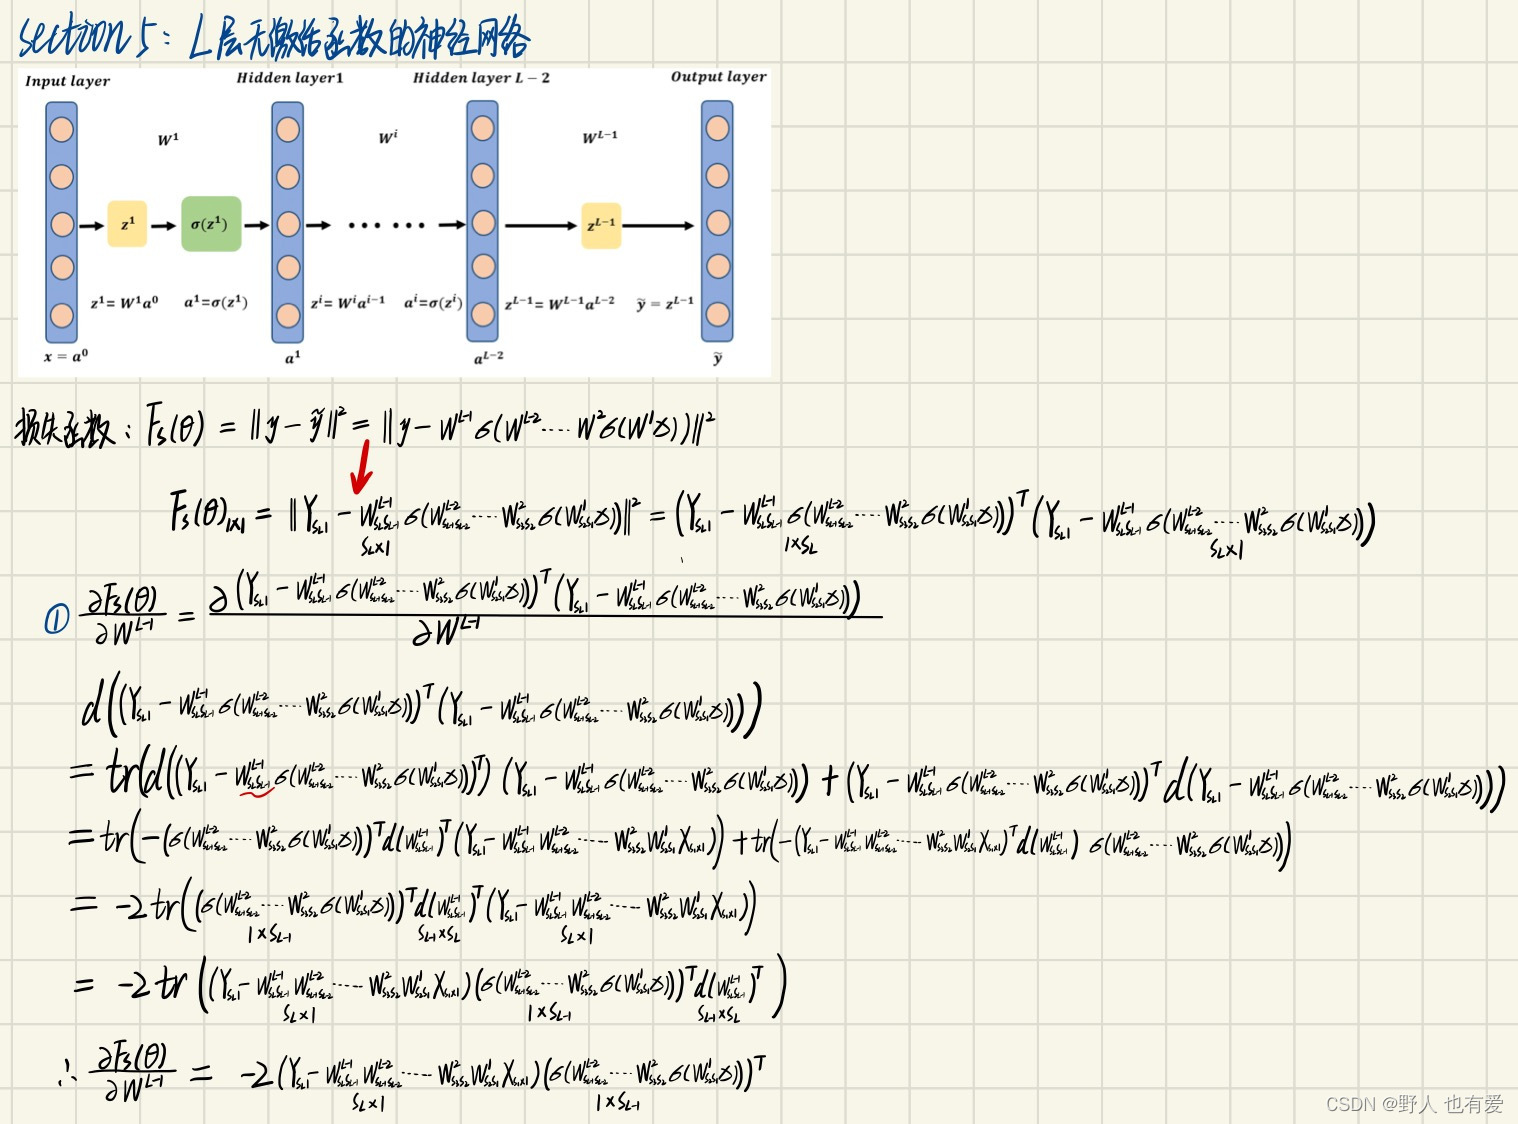 section 5: L层无激活函数的神经网络
Input layer Hidden layer1 Hidden layer L − 2 Output layer
W¹ Wⁱ W^{L−1}
z¹ σ(z¹) ······ z^{L−1}
z¹= W¹a⁰ a¹=σ(z¹) zⁱ= Wⁱa^{i−1} aⁱ=σ(zⁱ) z^{L−1}= W^{L−1}a^{L−2} ỹ = z^{L−1}
x = a⁰ a¹ a^{L−2} ỹ
损失函数: F_s(θ) = ||y − ỹ||² = ||y − W^{L-1}σ(W^{L-2}····W²σ(W¹x))||²
F_s(θ)_{1×1} = ||Y_{S_L1} − W^{L-1}_{S_LS_{L-1}}σ(W^{L-2}_{S_{L-1}S_{L-2}}····W²_{S_3S_2}σ(W¹_{S_2S_1}x))||² = (Y_{S_L1} − W^{L-1}_{S_LS_{L-1}}σ(W^{L-2}_{S_{L-1}S_{L-2}}····W²_{S_3S_2}σ(W¹_{S_2S_1}x)))^T (Y_{S_L1} − W^{L-1}_{S_LS_{L-1}}σ(W^{L-2}_{S_{L-1}S_{L-2}}····W²_{S_3S_2}σ(W¹_{S_2S_1}x)))
S_L×1 1×S_L S_L×1
① ∂F_s(θ)/∂W^{L-1} = ∂(Y_{S_L1} − W^{L-1}_{S_LS_{L-1}}σ(W^{L-2}_{S_{L-1}S_{L-2}}····W²_{S_3S_2}σ(W¹_{S_2S_1}x)))^T (Y_{S_L1} − W^{L-1}_{S_LS_{L-1}}σ(W^{L-2}_{S_{L-1}S_{L-2}}····W²_{S_3S_2}σ(W¹_{S_2S_1}x)))/∂W^{L-1}
d((Y_{S_L1} − W^{L-1}_{S_LS_{L-1}}σ(W^{L-2}_{S_{L-1}S_{L-2}}····W²_{S_3S_2}σ(W¹_{S_2S_1}x)))^T (Y_{S_L1} − W^{L-1}_{S_LS_{L-1}}σ(W^{L-2}_{S_{L-1}S_{L-2}}····W²_{S_3S_2}σ(W¹_{S_2S_1}x))))
= tr(d((Y_{S_L1} − W^{L-1}_{S_LS_{L-1}}σ(W^{L-2}_{S_{L-1}S_{L-2}}····W²_{S_3S_2}σ(W¹_{S_2S_1}x)))^T) (Y_{S_L1} − W^{L-1}_{S_LS_{L-1}}σ(W^{L-2}_{S_{L-1}S_{L-2}}····W²_{S_3S_2}σ(W¹_{S_2S_1}x))) + (Y_{S_L1} − W^{L-1}_{S_LS_{L-1}}σ(W^{L-2}_{S_{L-1}S_{L-2}}····W²_{S_3S_2}σ(W¹_{S_2S_1}x)))^T d(Y_{S_L1} − W^{L-1}_{S_LS_{L-1}}σ(W^{L-2}_{S_{L-1}S_{L-2}}····W²_{S_3S_2}σ(W¹_{S_2S_1}x))))
= tr(−(σ(W^{L-2}_{S_{L-1}S_{L-2}}····W²_{S_3S_2}σ(W¹_{S_2S_1}x)))^T d(W^{L-1}_{S_LS_{L-1}})^T (Y_{S_L1} − W^{L-1}_{S_LS_{L-1}}W^{L-2}_{S_{L-1}S_{L-2}}····W²_{S_3S_2}W¹_{S_2S_1}X_{S_1×1})) + tr(−(Y_{S_L1} − W^{L-1}_{S_LS_{L-1}}W^{L-2}_{S_{L-1}S_{L-2}}····W²_{S_3S_2}W¹_{S_2S_1}X_{S_1×1})^T d(W^{L-1}_{S_LS_{L-1}}) σ(W^{L-2}_{S_{L-1}S_{L-2}}····W²_{S_3S_2}σ(W¹_{S_2S_1}x)))
= −2tr((σ(W^{L-2}_{S_{L-1}S_{L-2}}····W²_{S_3S_2}σ(W¹_{S_2S_1}x)))^T d(W^{L-1}_{S_LS_{L-1}})^T (Y_{S_L1} − W^{L-1}_{S_LS_{L-1}}W^{L-2}_{S_{L-1}S_{L-2}}····W²_{S_3S_2}W¹_{S_2S_1}X_{S_1×1}))
1×S_{L-1} S_{L-1}×S_L S_L×1
= −2tr((Y_{S_L1} − W^{L-1}_{S_LS_{L-1}}W^{L-2}_{S_{L-1}S_{L-2}}····W²_{S_3S_2}W¹_{S_2S_1}X_{S_1×1})(σ(W^{L-2}_{S_{L-1}S_{L-2}}····W²_{S_3S_2}σ(W¹_{S_2S_1}x)))^T d(W^{L-1}_{S_LS_{L-1}})^T)
S_L×1 1×S_{L-1} S_{L-1}×S_L
∴ ∂F_s(θ)/∂W^{L-1} = −2(Y_{S_L1} − W^{L-1}_{S_LS_{L-1}}W^{L-2}_{S_{L-1}S_{L-2}}····W²_{S_3S_2}W¹_{S_2S_1}X_{S_1×1})(σ(W^{L-2}_{S_{L-1}S_{L-2}}····W²_{S_3S_2}σ(W¹_{S_2S_1}x)))^T
S_L×1 1×S_{L-1}
CSDN @野人 也有爱